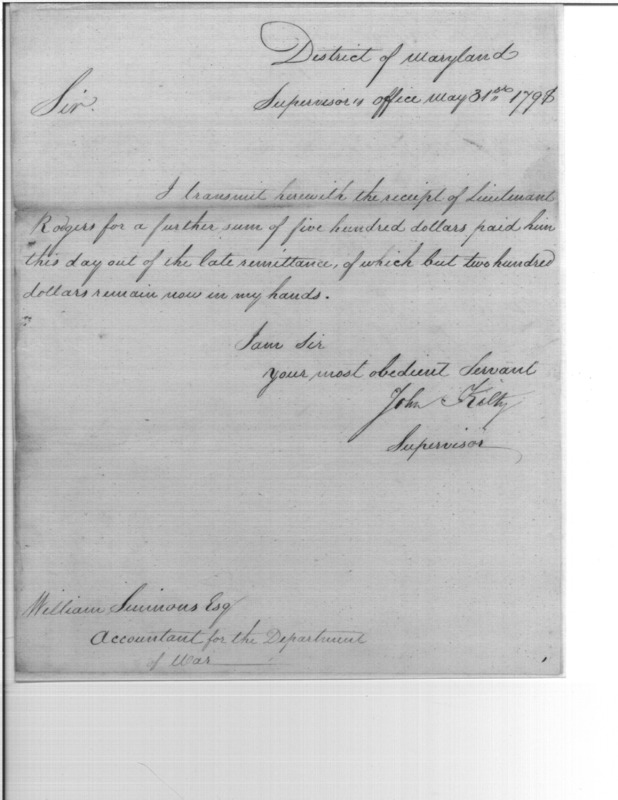 District of Maryland
Sir. Supervisor's office May 31st 1798
I transmit herewith the receipt of Lieutenant
Rodgers for a further sum of five hundred dollars paid him
this day out of the late remittance, of which but two hundred
dollars remain now in my hands.
I am Sir
your most obedient Servant
John Kilty
Supervisor
William Simmons Esqr
Accountant for the Department
of War